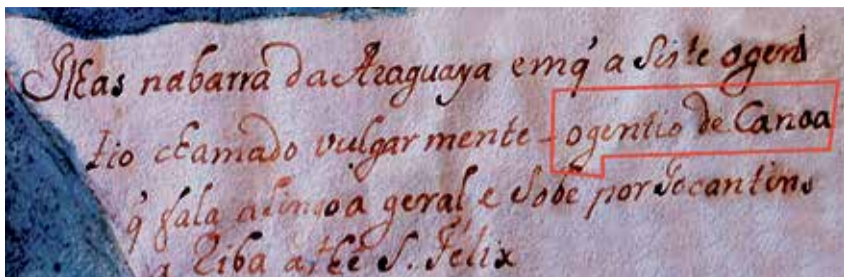 Ilhas nabarra da Araguaya emq̃ a Siste ogen
tio chamado vulgarmente - ogentio de Canoa
q̃ fala alingoa geral e Sobe por tocantins
a Riba athé S. Felix